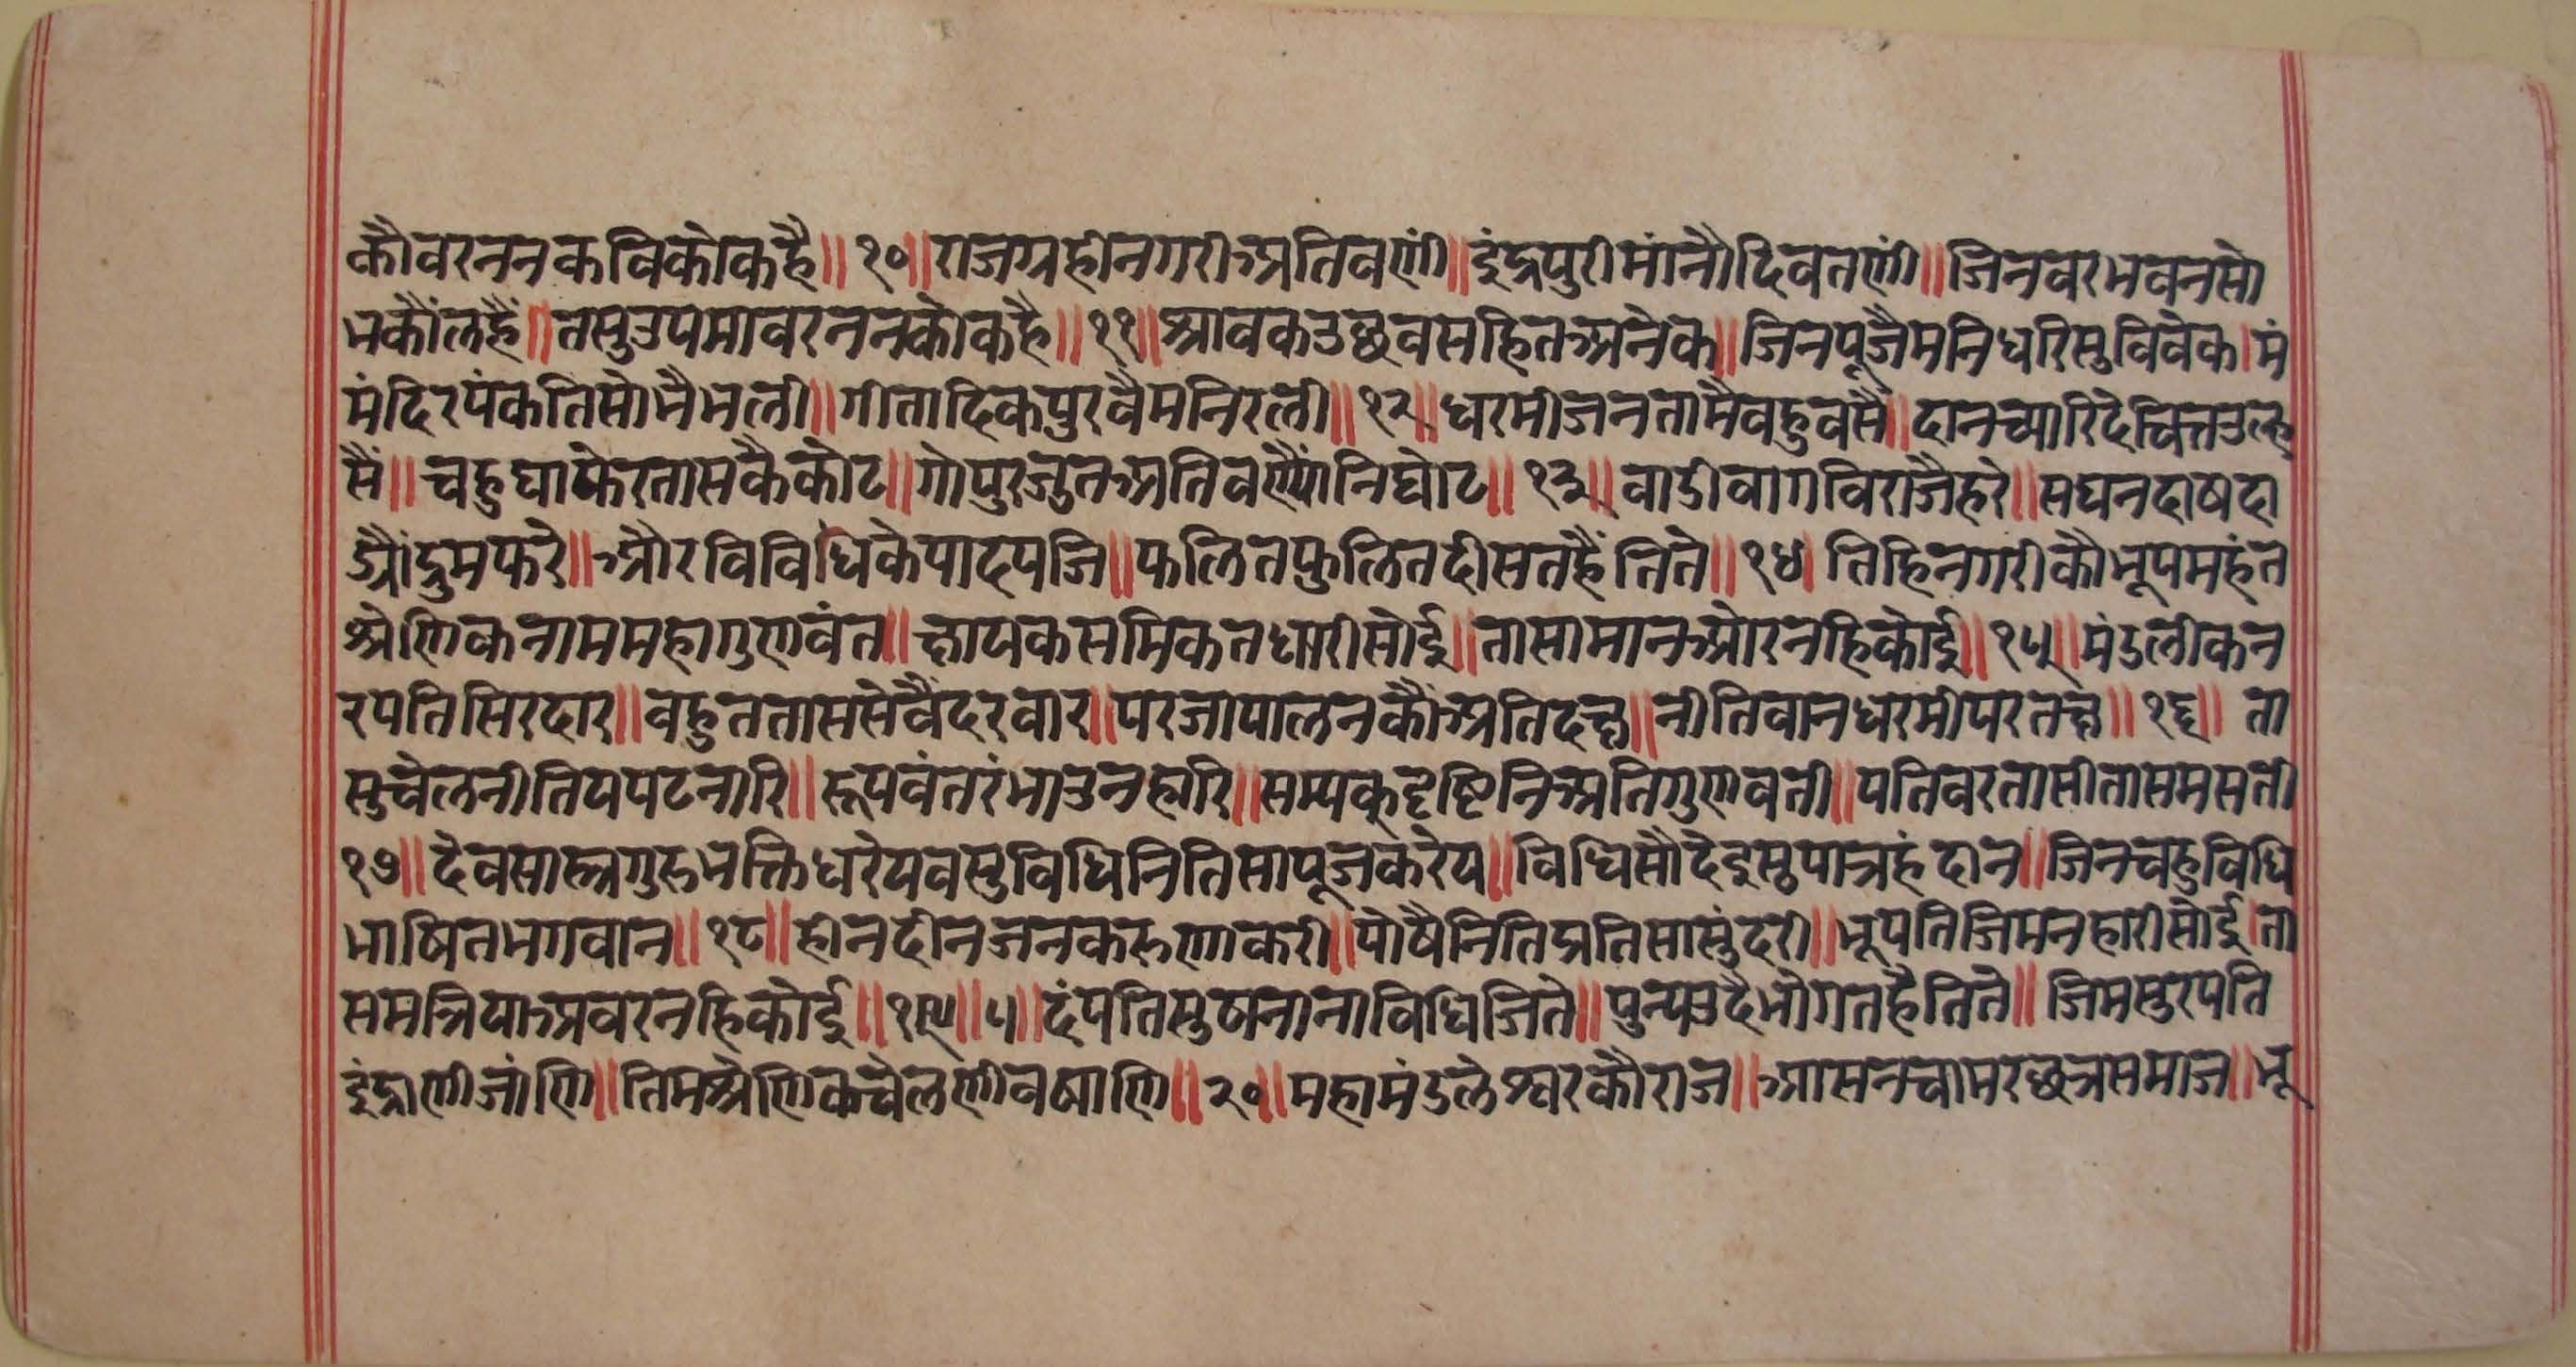 कौवरननकविकोकहै॥१०॥राजग्रहीनगरीअतिवणी॥इंद्रपुरीमांनौदिवतणी॥जिनवरभवनसो
भकौंलहैं॥तसुउपमावरननकोकहै॥११॥श्रावकउछवसहितअनेक॥जिनपूजैमनिधरिसुविवेक।मं
मंदिरपंकतिसोभैभली॥गीतादिकपुरवैमनिरली॥१२॥धरमीजनतामैवहुवसै॥दानच्यारिदेचित्तउल्ह
सैं॥चहुघाफेरतासकैकोट॥गोपुरजुतअतिवण्यौंनिघोट॥१३॥वाडीवागविराजैहरे॥सघनदाषदा
ड्यौंद्रुमफरे॥औरविविधिकेपादपजि॥फलितफुलितदीसतहैंतिते॥१४।तिहिनगरीकौभूपमहंत
श्रेणिकनाममहागुणवंत॥क्षायकसमिकतधारीसोई॥तासामानओरनहिकोई॥१५॥मंडलीकन
रपतिसिरदार॥वहुतताससेवैंदरवार॥परजापालनकौंअतिदक्ष॥नीतिवानधरमीपरतक्ष॥१६॥ता
सुचेलनीतियपटनारि॥रूपवंतरंभाउनहारि॥सम्यकुदृष्टिनिअतिगुणवती॥पतिवरतासीतासमसती
१७॥देवसास्त्रगुरुभक्तिधरेयवसुविधिनितिसापूजकरेय॥विधिसौदेइसुपात्रहंदान॥जिनचहुविधि
भाषितभगवान॥१८॥हीनदीनजनकरुणाकरी॥पोषैनितिप्रतिसासुंदरी॥भूपतिजिमनहारीसोई।ता
समत्रियाअवरनहिकोई॥१९॥५॥दंपतिसुषनानाविधिजिते॥पुन्यउदैभोगतहैतिते॥जिमसुरपति
इंद्राणीजांणि॥तिमश्रेणिकचेलणीवषाणि॥२०॥महामंडलेश्वरकौराज॥आसनचामरछत्रसमाज॥भू